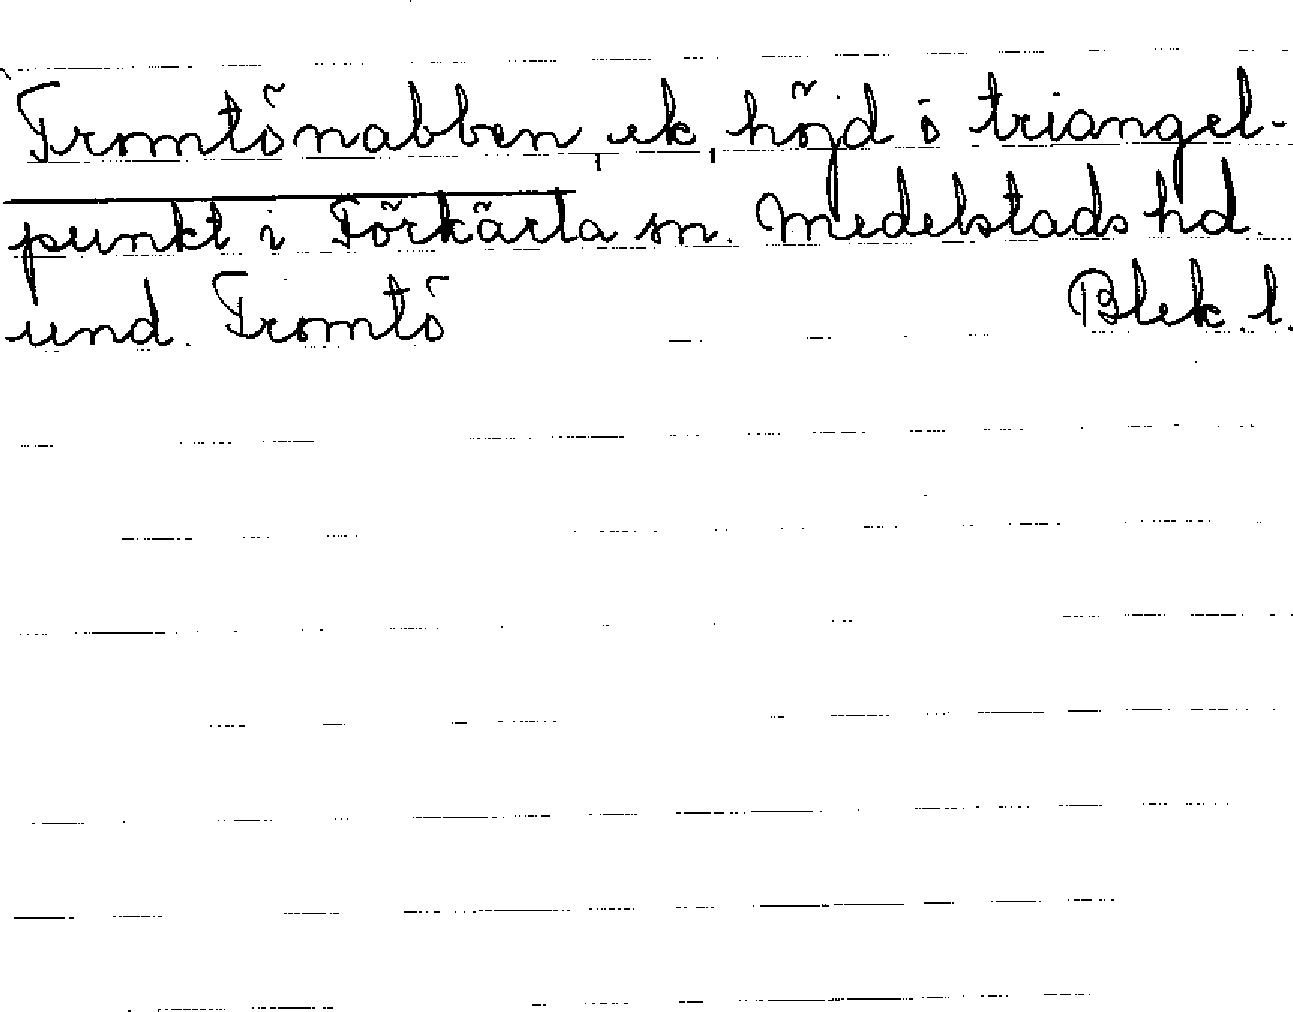 Tromtönabben, ek, höjd o triangel-
punkt i Förkärla sn. Medelstads hd.
und. Tromtö Blek. l.